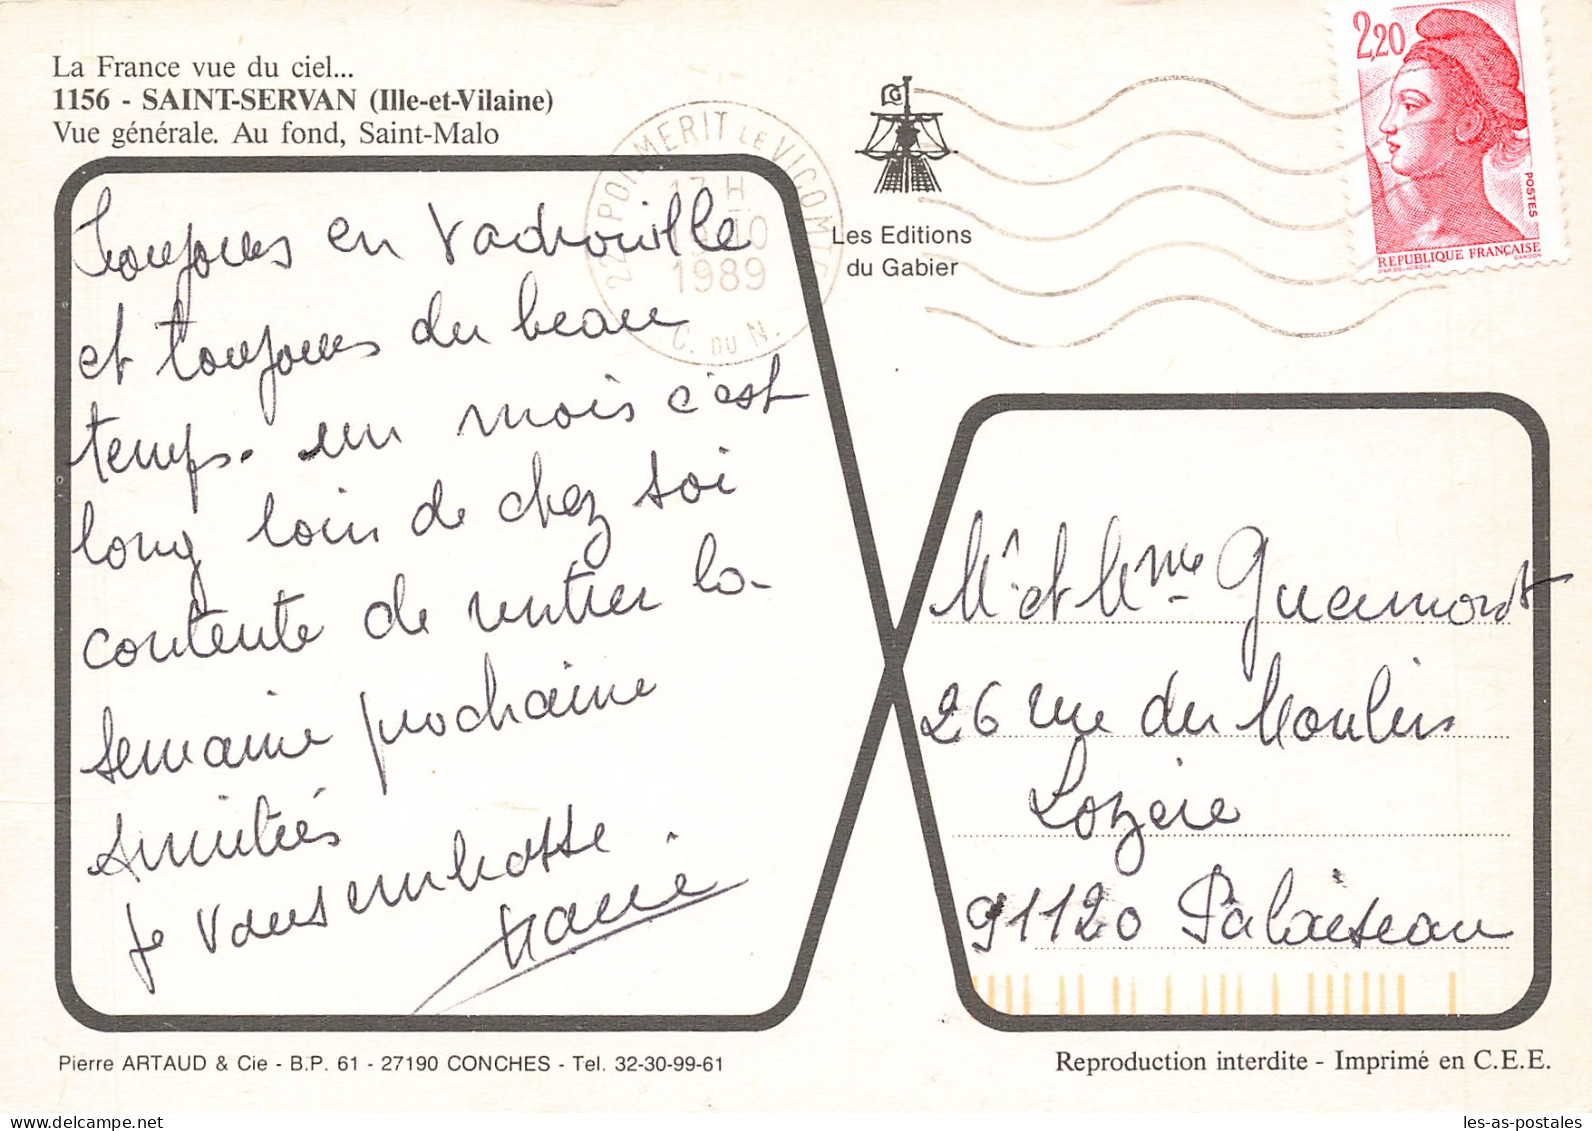 La France vue du ciel...
1156 - SAINT-SERVAN (Ille-et-Vilaine)
Vue générale. Au fond, Saint-Malo
22 POMMERIT LE VICOMTE
17 H
10
1989
C. DU N.
Les Editions
du Gabier
2,20
POSTES
REPUBLIQUE FRANÇAISE
GANDON
Toujours en vadrouille
et toujours du beau
temps. un mois c'est
long loin de chez soi
contente de rentrer la
semaine prochaine
Amitiés
je vous embrasse
Marie
Mr et Mme Guermont
26 rue du Moulin
Lozère
91120 Palaiseau
Pierre ARTAUD & Cie - B.P. 61 - 27190 CONCHES - Tel. 32-30-99-61
Reproduction interdite - Imprimé en C.E.E.
delcampe.net
les-as-postales